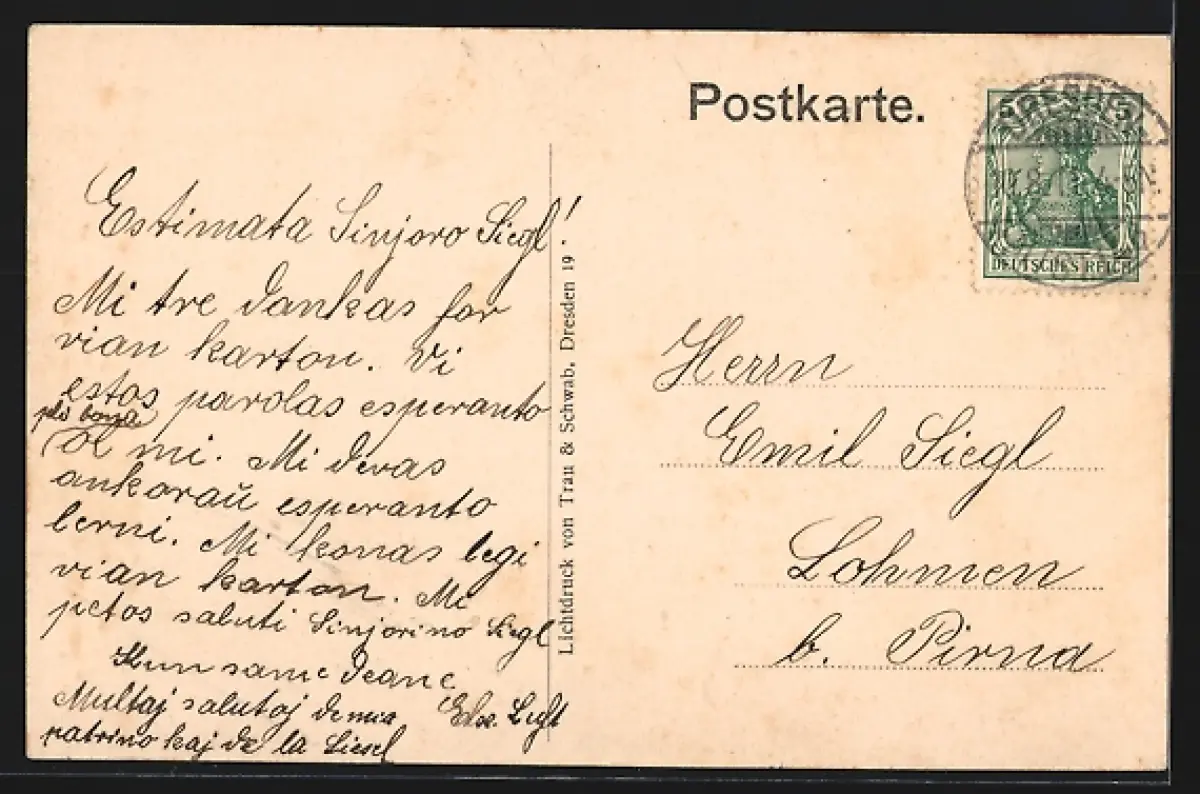 Postkarte.
5 5
DRESDEN
DEUTSCHES REICH
Estimata Sinjoro Siegl!
Mi tre dankas for
vian karton. Vi
estos parolas esperanto
plu bona
ol mi. Mi devas
ankoraŭ esperanto
lerni. Mi konas legi
vian karton. Mi
petos saluti Sinjorino Siegl
Kun same
Multaj salutoj de mia
patrino kaj de la Liesel
Lichtdruck von Trau & Schwab, Dresden 19
Herrn
Emil Siegl
Lohmen
b. Pirna